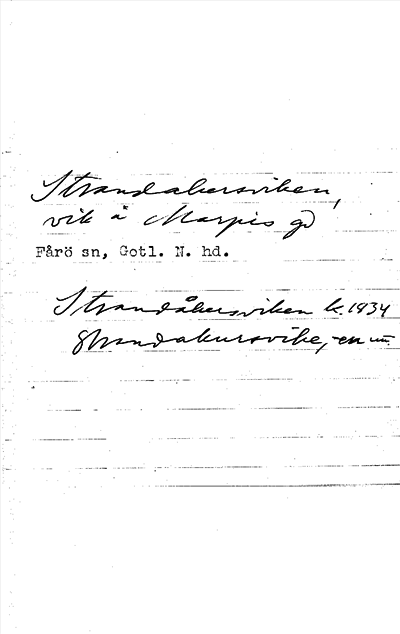 Strandakersviken,
vik å Marpis gd
Fårö sn, Gotl. N. hd.
Strandåkersviken k. 1934
strandakursvike, -en un.